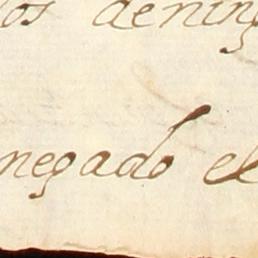 los dening
negado el